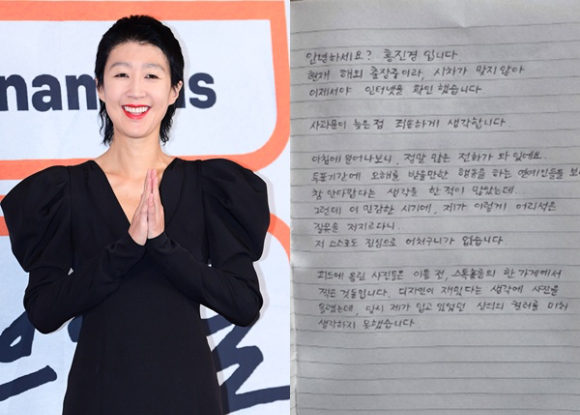 안녕하세요? 홍진경 입니다
현재 해외 출장중이라, 시차가 맞지 않아
이제서야 인터넷을 확인 했습니다
사과문이 늦은점 죄송하게 생각합니다
아침에 일어나보니, 정말 많은 전화가 와 있네요.
투표기간에 오해를 받을만한 행동을 하는 연예인들을 보
참 안타깝다는 생각을 한 적이 많았는데.
그런데 더 민감한 시기에, 제가 이렇게 어리석은
잘못을 저지르다니.
저 스스로도 진심으로 어처구니가 없습니다
피드에 올린 사진들은 이틀 전, 스톡홀름의 한 가게에서
찍은 것들입니다. 디자인이 재밌다는 생각에 사진을
올렸는데, 당시 제가 입고 있었던 상의의 컬러를 미처
생각하지 못했습니다.